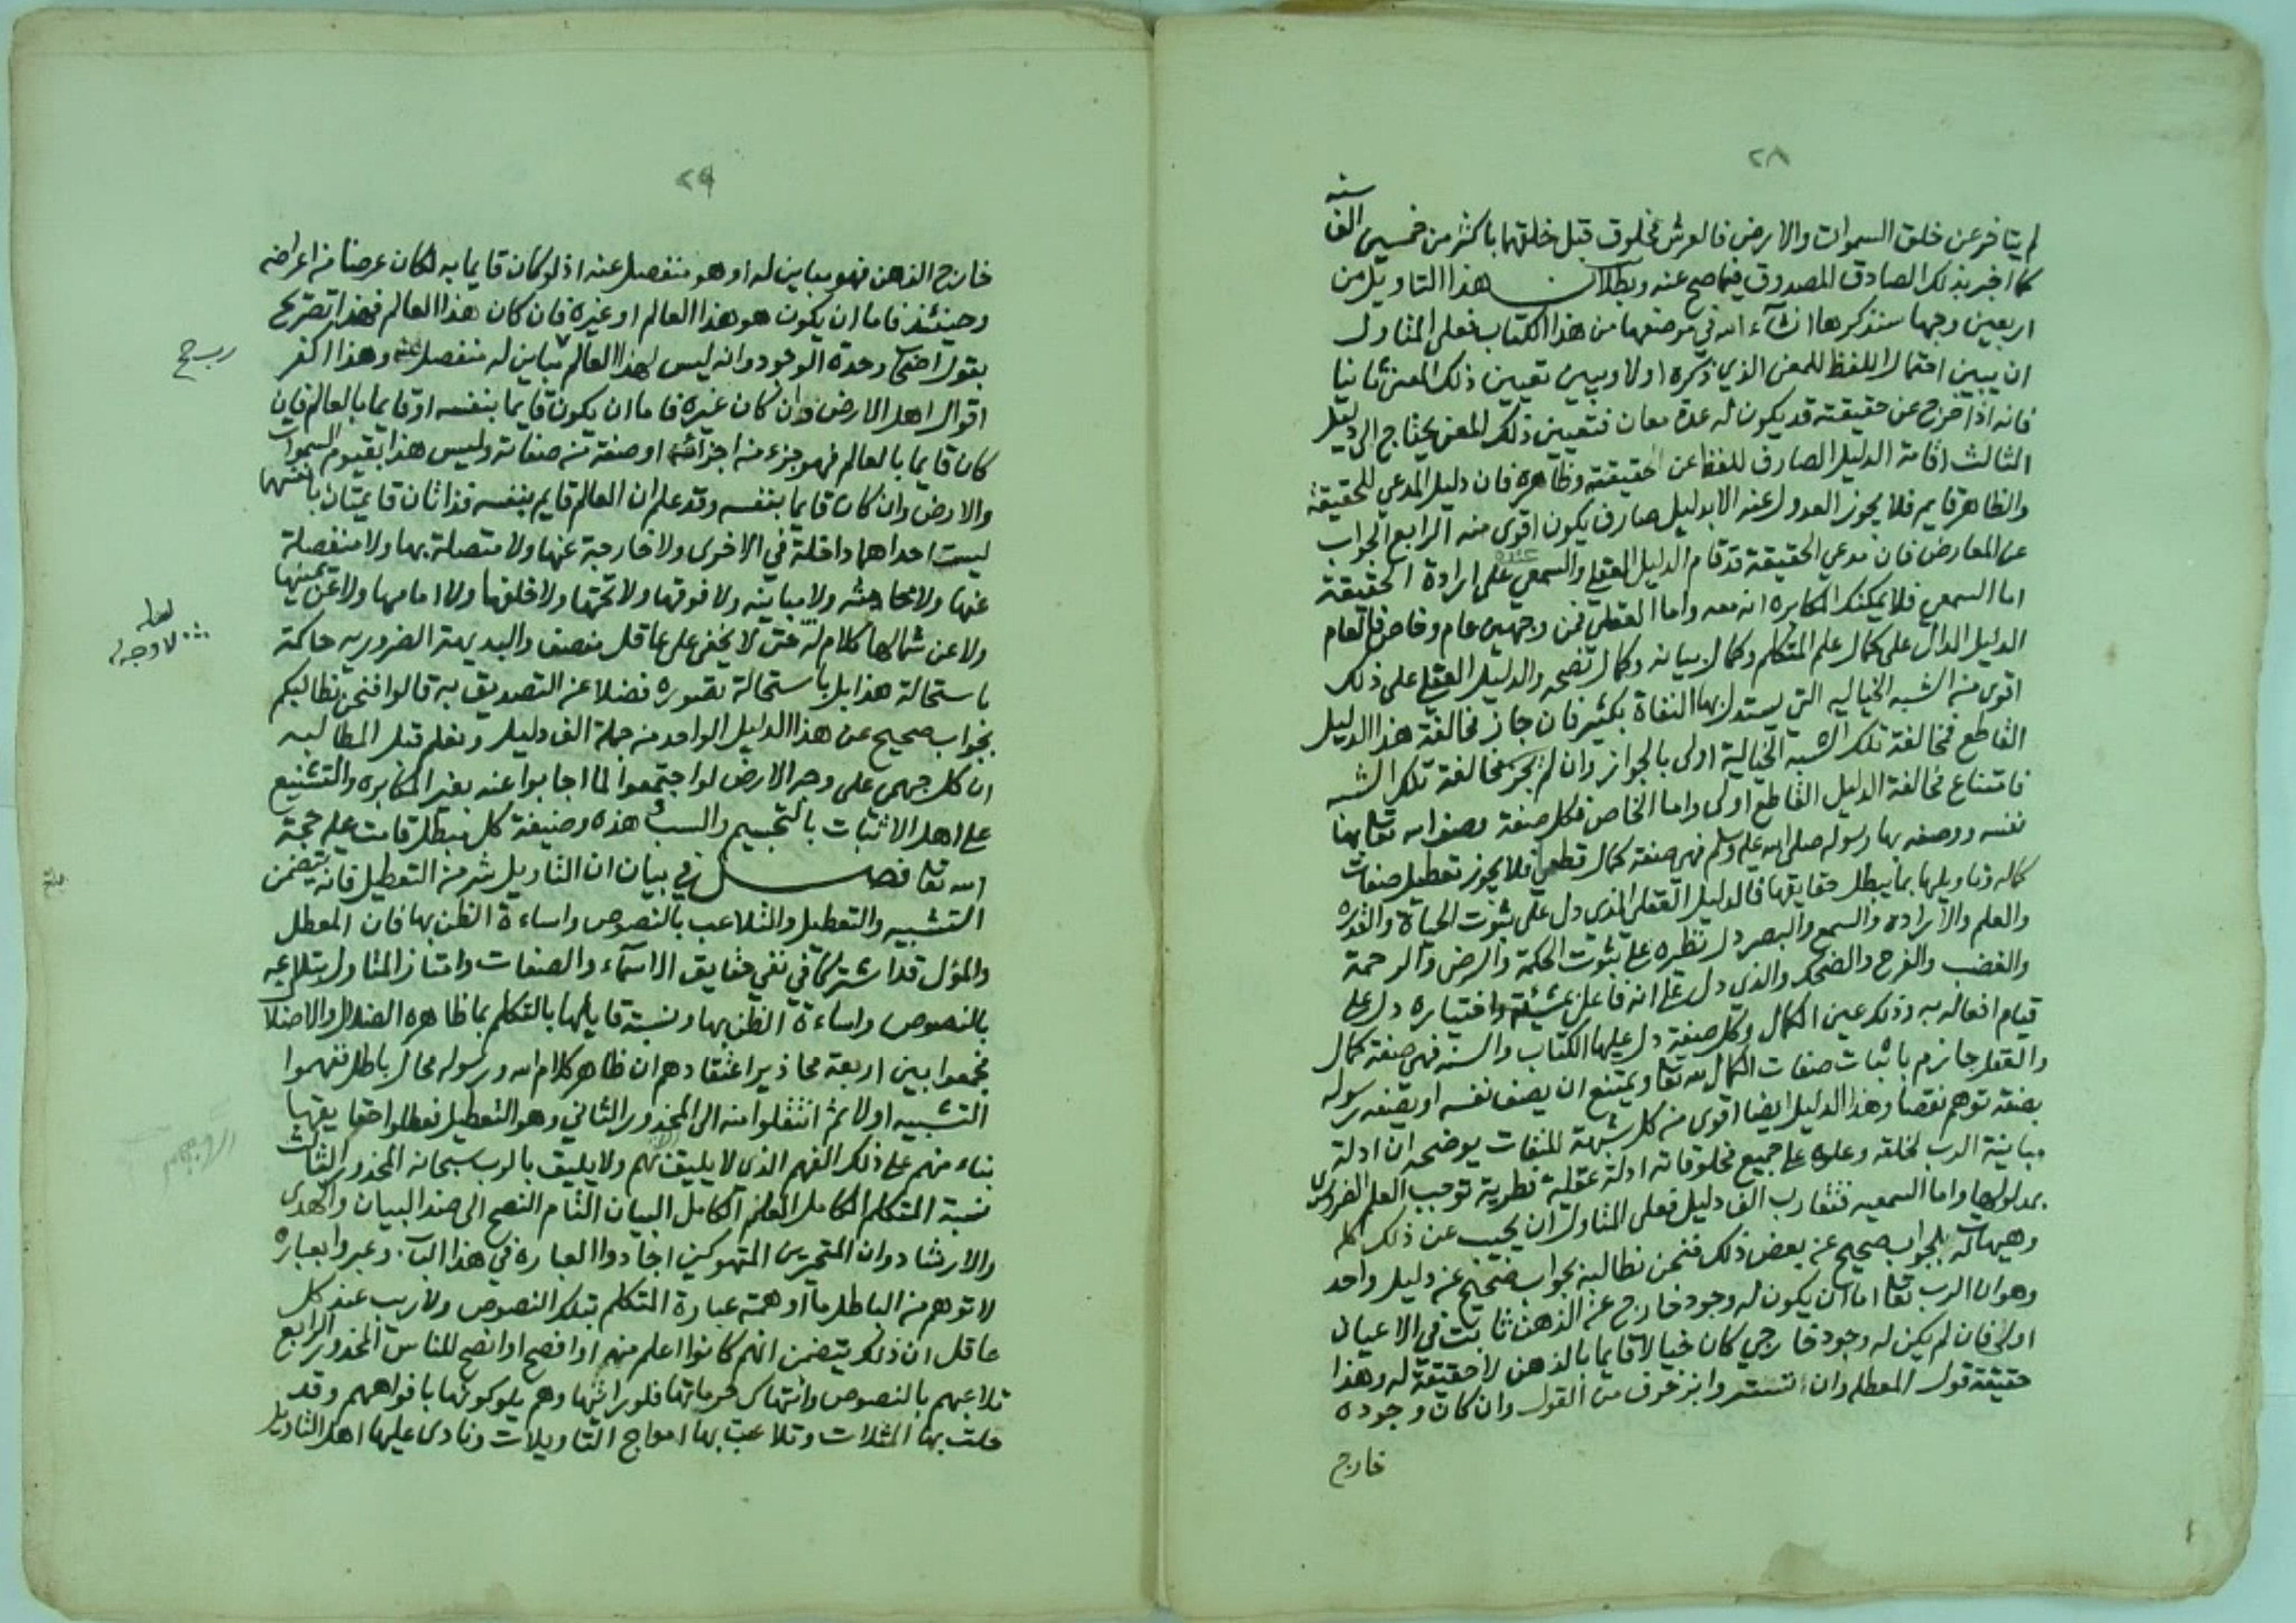 ٢٨
سنه
لم يتاخر عن خلق السموات والارض فالعرش مخلوق قبل خلقهما باكثر من خمسين الف
كما اخبر بذلك الصادق المصدوق فيما صح عنه وبطلان هذا التاويل من
اربعين وجها سنذكرها ان شآء الله في موضعها من هذا الكتاب فعلى المتاول
ان يبين احتمال اللفظ للمعنى الذي ذكره اولا ويبين تعيين ذلك المعنى ثانيا
فانه اذا اخرج عن حقيقته قد يكون له عدة معان فتعيين ذلك المعنى يحتاج الى دليل
الثالث اقامة الدليل الصارف للفظ عن حقيقته وظاهره فان دليل المدعي للحقيقة
والظاهر قايم فلا يجوز العدول عنه الا بدليل صارف يكون اقوى منه الرابع الجواب
عن المعارض فان مدعي الحقيقة قد قام الدليل العقلي والسمعي عنده على ارادة الحقيقة
اما السمعي فلا يمكنك المكابره انه معه واما العقلي فمن وجهين عام وخاص فالعام
الدليل الدال على كمال علم المتكلم وكمال بيانه وكمال نصحه والدليل العقلي على ذلك
اقوى من الشبه الخياليه التي يستدل بها النفاة بكثير فان جاز مخالفة هذا الدليل
القاطع فمخالفة تلك الشبه الخيالية اولى بالجواز وان لم تجز مخالفة تلك الشبه
فامتناع مخالفة الدليل القاطع اولى واما الخاص فكل صفة وصف الله تعالى بها
نفسه ووصفه بها رسوله صلى الله عليه وسلم فهي صفة كمال قطعا فلا يجوز تعطيل صفات
كماله وتاويلها بما يبطل حقايقها فالدليل العقلي الذي دل على ثبوت الحياة والقدره
والعلم والارادة والسمع والبصر دل نظيره على ثبوت الحكمة والرضى والرحمة
والغضب والفرح والضحك والذي دل على انه فاعل بمشيئته واختياره دل على
قيام افعاله به وذلك عين الكمال وكل صفة دل عليها الكتاب والسنه فهي صفة كمال
والعقل جازم باثبات صفات الكمال لله تعالى ويمتنع ان يصف نفسه او يصفه رسوله
بصفة توهم نقصا وهذا الدليل ايضا اقوى من كل شبهة للنفات يوضحه ان ادلة
مباينة الرب لخلقه وعلوه على جميع مخلوقاته ادلة عقلية نظرية توجب العلم الضروري
بمدلولها واما السمعيه فتقارب الف دليل فعلى المتاول ان يجيب عن ذلك كله
وهيهات له بجواب صحيح عن بعض ذلك فنحن نطالبه بجواب صحيح عن دليل واحد
وهو ان الرب تعالى اما ان يكون له وجود خارج عن الذهن ثابت في الاعيان
اولى فان لم يكن له وجود خارجي كان خيالا قايما بالذهن لا حقيقة له وهذا
حقيقة قول المعطله وان تستروا بزخرف من القول وان كان وجوده
خارج
٢٩
خارج الذهن فهو مباين له او هو منفصل عنه اذ لو كان قايما به لكان عرضا من اعراضه
وحينئذ فاما ان يكون هو هذا العالم او غيره فان كان هذا العالم فهذا تصريح
بقول اصحاب وحدة الوجود وانه ليس لهذا العالم مباين له منفصل عنه وهذا اكفر
اقوال اهل الارض وان كان غيره فاما ان يكون قايما بنفسه او قايما بالعالم فان
كان قايما بالعالم فهو جزء من اجزائه او صفة من صفاته وليس هذا بقيوم السموات
والارض وان كان قايما بنفسه وقد علم ان العالم قايم بنفسه فذاتان قايمتان بانفسهما
ليست احداهما داخلة في الاخرى ولا خارجة عنها ولا متصلة بها ولا منفصلة
عنها ولا محايثه ولا مباينه ولا فوقها ولا تحتها ولا خلفها ولا امامها ولا عن يمينها
ولا عن شمالها كلام له خبى لا يخفى على عاقل منصف والبديهة الضروريه حاكمة
باستحالة هذا بل باستحالة تصوره فضلا عن التصديق به قالوا فنحن نطالبكم
بجواب صحيح عن هذا الدليل الواحد من جملة الف دليل ونعلم قبل المطالبه
ان كل جهمي على وجه الارض لو اجتمعوا لما اجابوا عنه بغير المكابره والتشنيع
على اهل الاثبات بالتجسيم والسب وهذه وضيفة كل مبطل قامت عليه حجة
الله تعالى فصل في بيان ان التاويل شر من التعطيل فانه يتضمن
التشبيه والتعطيل والتلاعب بالنصوص واساءة الظن بها فان المعطل
والمؤل قد اشتركا في نفي حقايق الاسمآء والصفات وامتاز المتاول بتلاعبه
بالنصوص واساءة الظن بها ونسبة قايلها بالتكلم بما ظاهره الضلال والاضلال
فجمعوا بين اربعة محاذير اعتقادهم ان ظاهر كلام الله ورسوله محال باطل ففهموا
التشبيه اولا ثم انتقلوا منه الى المحذور الثاني وهو التعطيل فعطلوا حقايقها
بناء منهم على ذلك الفهم الذي لا يليق بهم ولا يليق بالرب سبحانه المحذور الثالث
نسبة المتكلم الكامل العلم الكامل البيان التام النصح الى ضد البيان والهدى
والارشاد وان المتحيرين المتهوكين اجادوا العباره في هذا الباب وعبروا بعباره
لا توهم من الباطل ما اوهمته عبارة المتكلم بتلك النصوص ولا ريب عند كل
عاقل ان ذلك يتضمن انهم كانوا اعلم منه او افصح او انصح للناس المحذور الرابع
تلاعبهم بالنصوص وانتهاك حرماتها فلو رايتها وهم يلوكونها بافواههم وقد
حلت بها المثلات وتلاعبت بها امواج التاويلات ونادى عليها اهل التاويل
لعله
لا وجه له